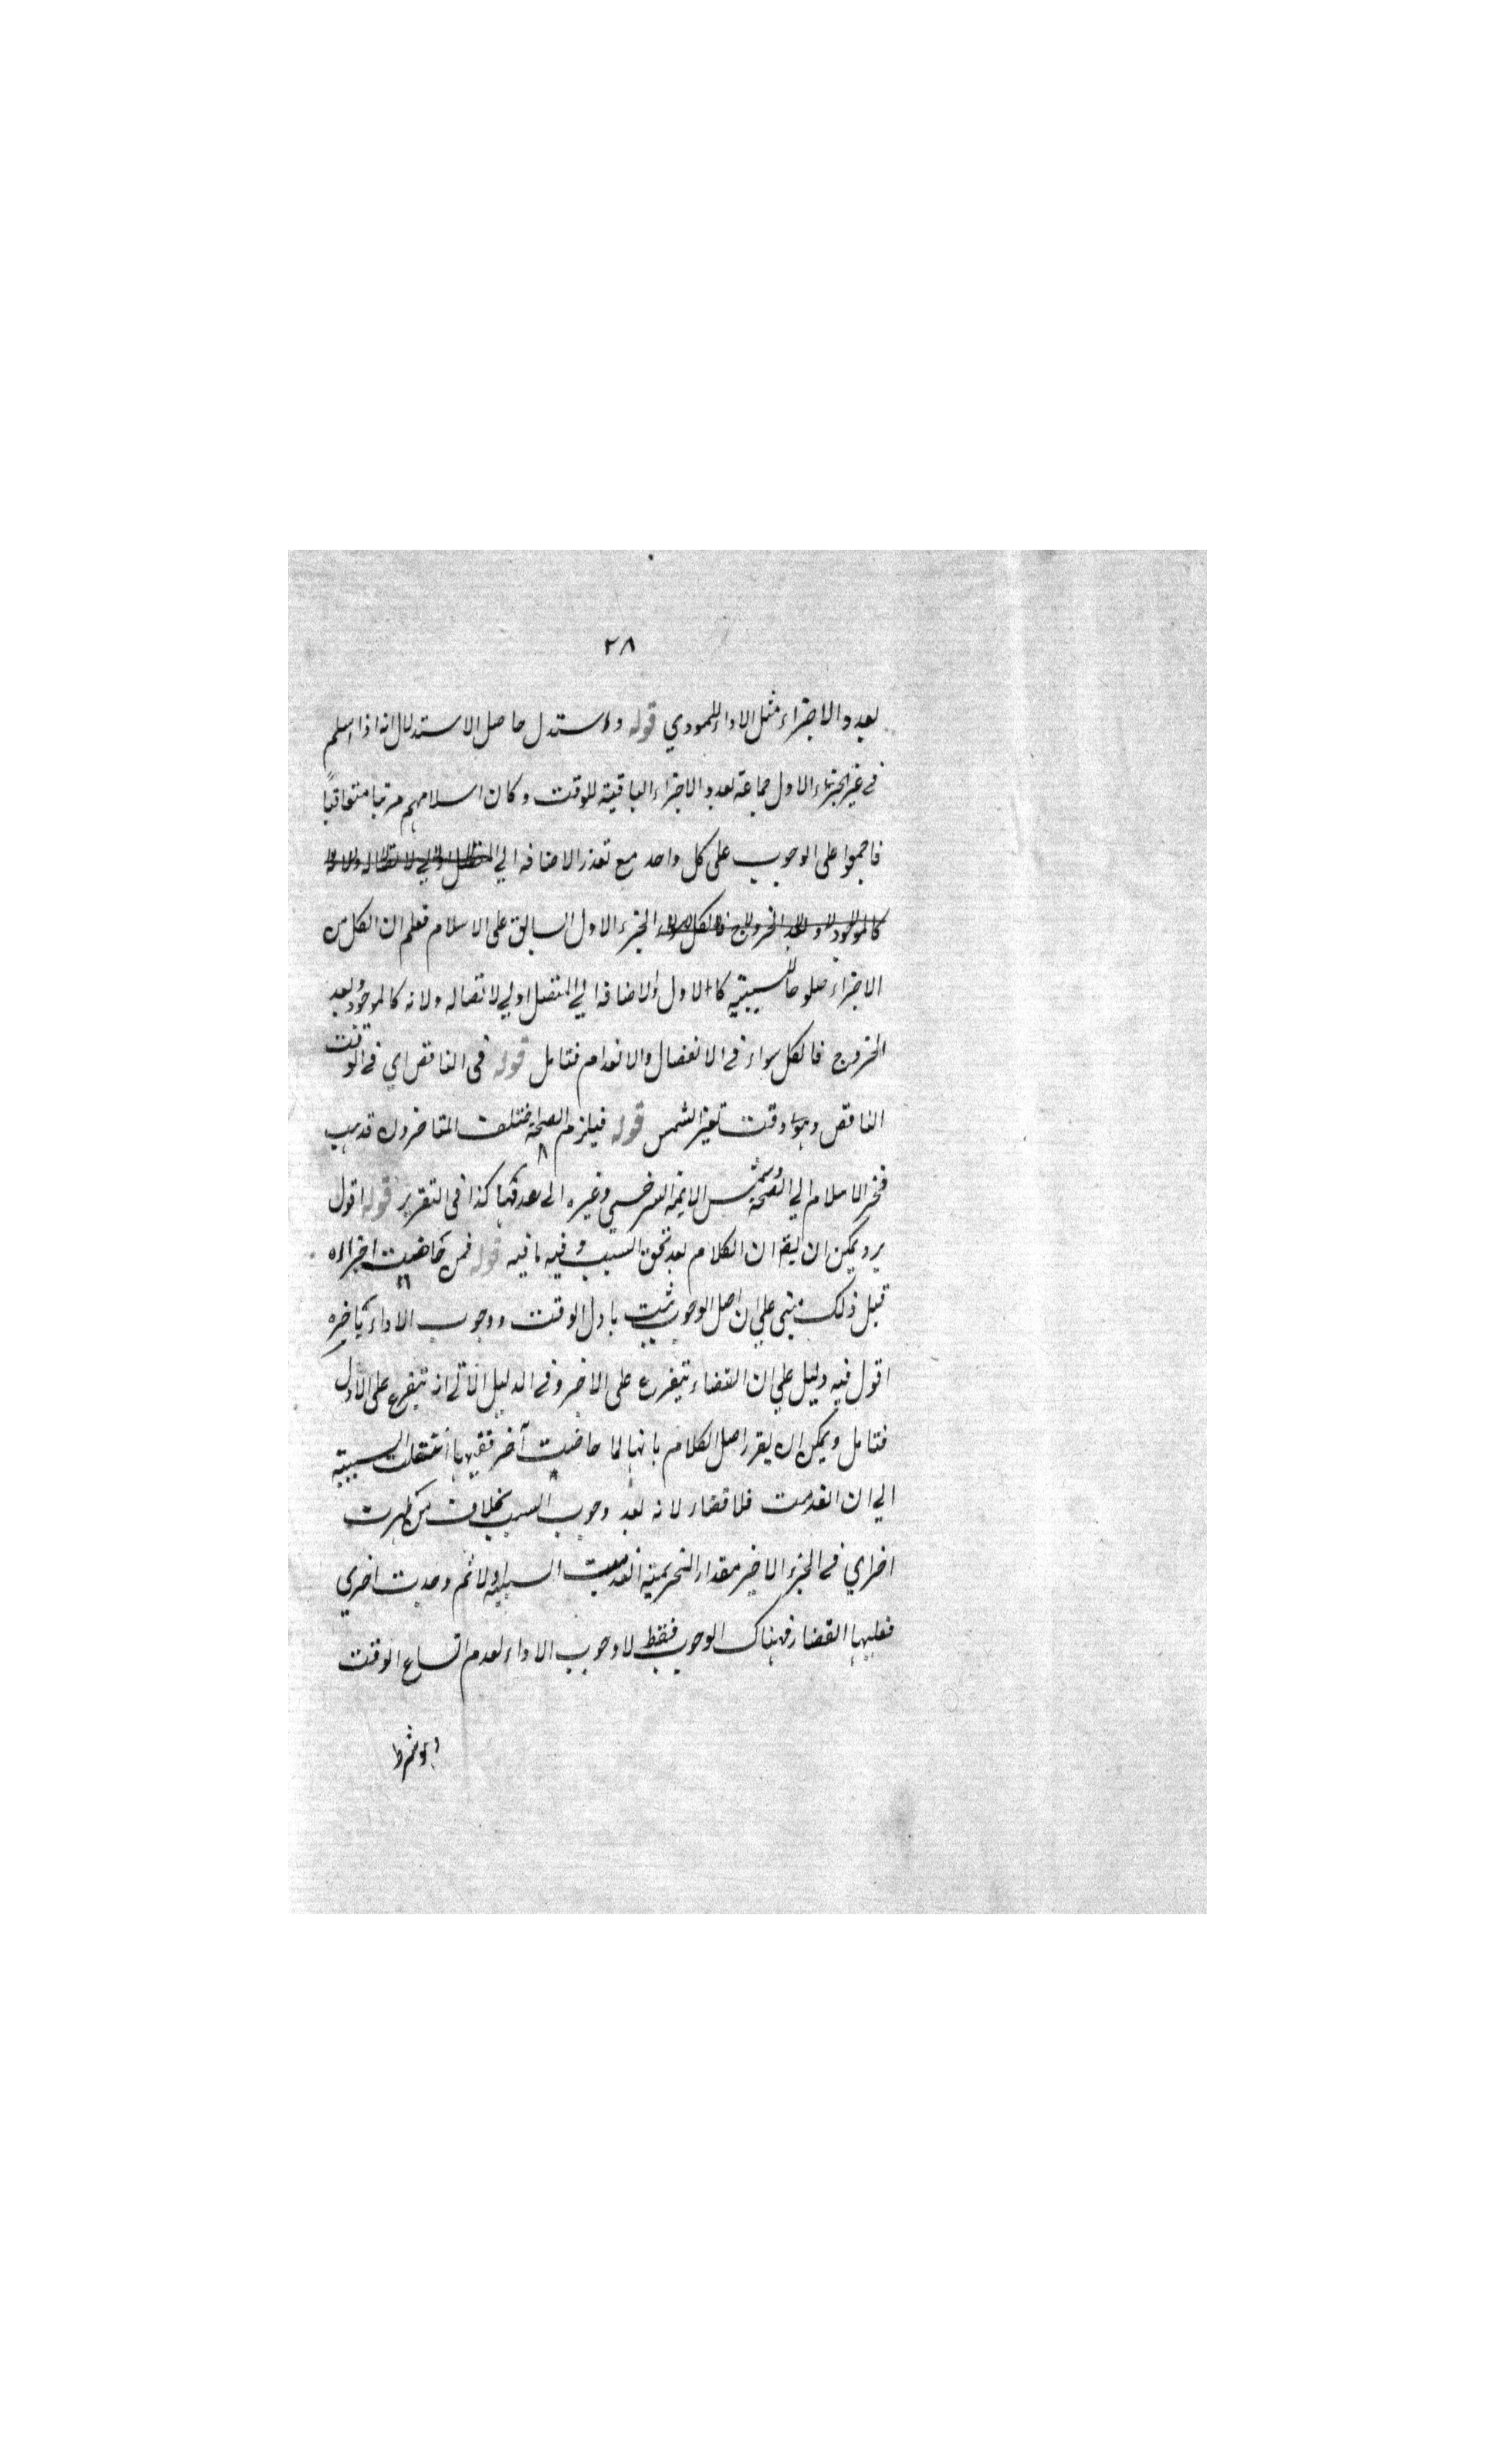 ٢٨
بعدد الاجزاء مثل الاداء للمودي قوله واستدل حاصل الاستدلال انه اذا اسلم
في غير الجزء الاول جماعة بعدد الاجزاء الباقية للوقت وكان اسلامهم مرتبا متعاقبًا
فاجمعوا على الوجوب على كل واحد مع تعذر الاضافه الي المتصل اولي لاتصاله ولانه
كالموجود بعد الخروج فالكل سواء الجزء الاول السابق على الاسلام فعلم ان الكل من
الاجزاء صلوحا للسببية كالاول والاضافه الي المتصل اولي لاتصاله ولانه كالموجود بعد
الخروج فالكل سواء في الانفصال والانعدام فتامل قوله في الناقص اي في الوقت
الناقص وهو وقت تغير الشمس قوله فيلزم الصحة اختلف المتاخرون فذهب
فخر الاسلام الي الصحة وشمس الايمة السرخسي وغيره الى عدمها كذا في التقرير قوله اقول
يرد يمكن ان يقم ان الكلام بعد تحقق السبب وفيه ما فيه قوله فمن حاضت اجزاءه
قبل ذلك مبني علي ان اصل الوجوب يثبت باول الوقت ووجوب الاداء باخره
اقول فيه دليل علي ان القضاء يتفرع على الاخر وفي الدليل الاتي انه يتفرع على الاول
فتامل ويمكن ان يقرر اصل الكلام بانها لما حاضت آخر ففيها انتقلت السببية
الي ان انعدمت فلا قضاء لانه بعد وجوب السبب بخلاف من طهرت
اخراي في الجزء الاخير مقدار التحريمة انعدمت السببية اولا ثم وجدت اخري
فعليها القضاء فهناك الوجوب فقط لا وجوب الاداء لعدم اتساع الوقت
وهو شرط